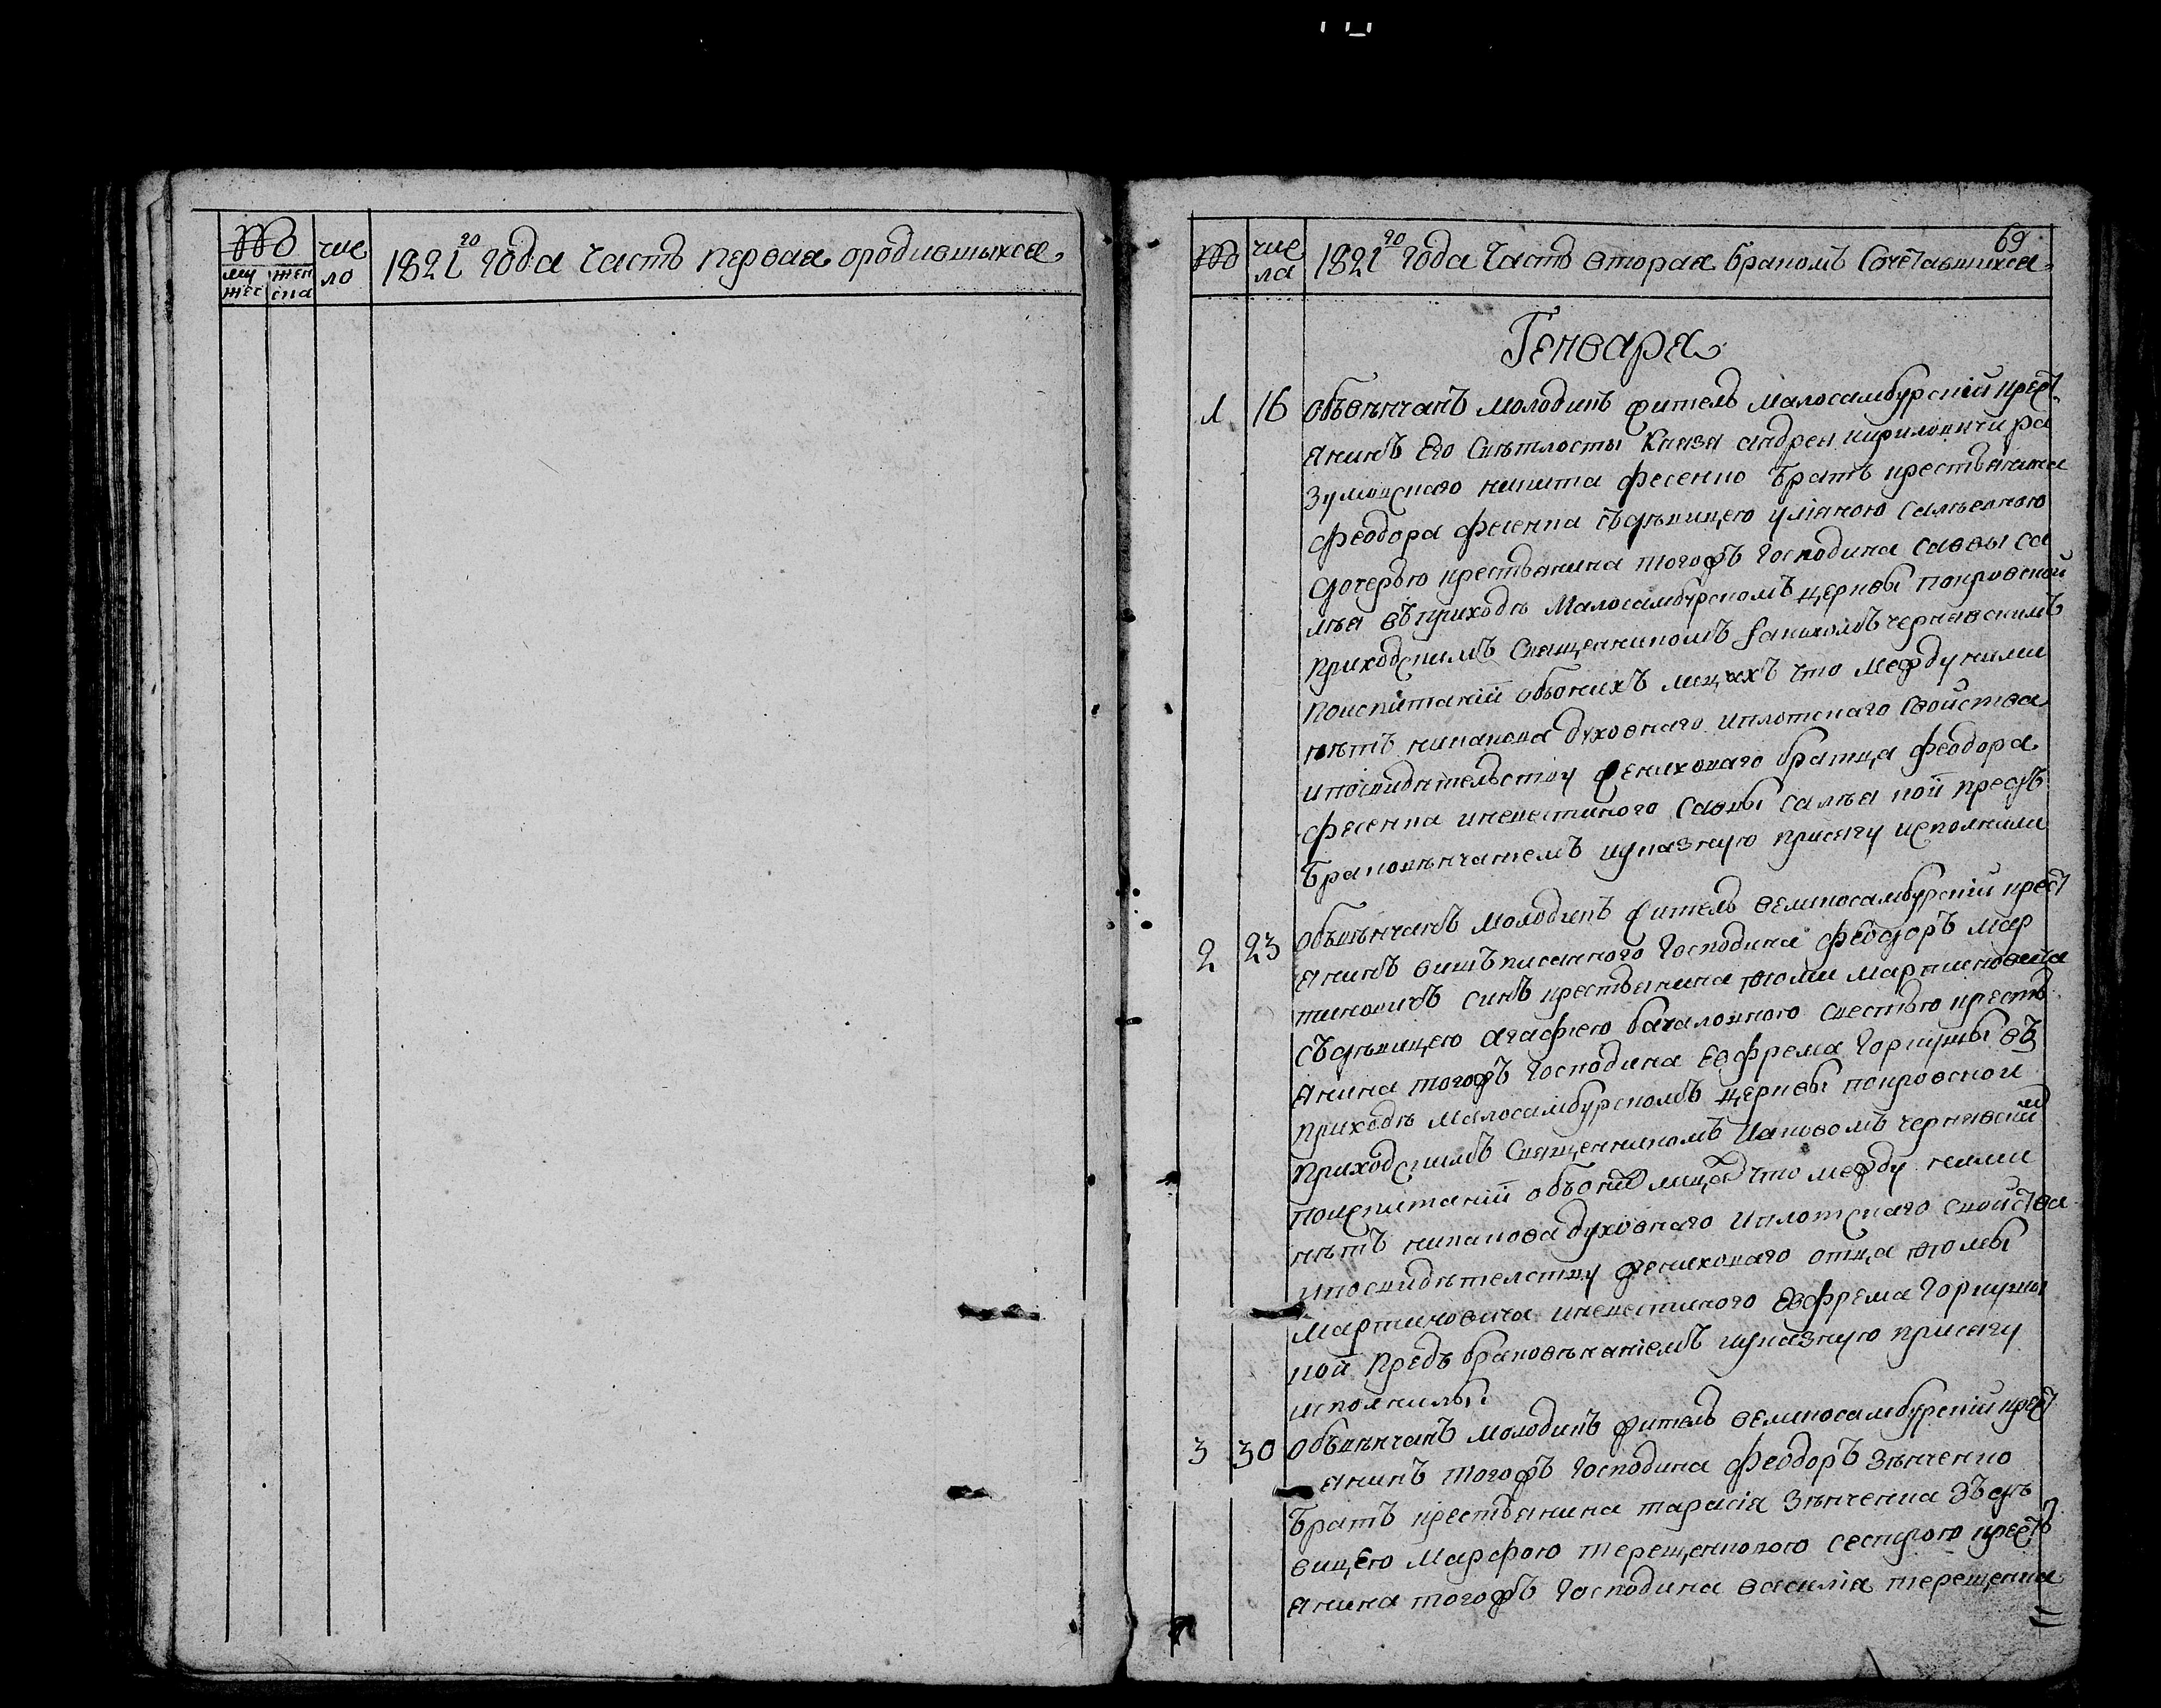 №
чис
ло
му
жес
жен
ска
1821го года Часть Первая ородившыхся
69
№
чис
ла
1821го года Часть вторая бракомъ Сочетавшихся
Генваря
1 16 Объвѣнчанъ молодикъ житель малосамбурскій крест
янинъ Его Свѣтлосты Князя андрея кириловича ра
зумовского никита Фесенко братъ крестьянина
Феодора Фесенка съдѣвицею уліяною
дочерью крестьянина тогожъ Господина саввы са
въ приходѣ Малосамбурскомъ церквы покровской
приходскимъ Священникомъ Іаковомъ чернявскимъ
поиспитаніи обонихъ лицахъ что между ними
нѣтъ никакова духовнаго иплотскаго свойства
ипосвидѣтельству жениховаго братца феодора
фесенка иневестиного саввы кой предъ
браковѣнчаніемъ иуказную присягу исполнили
2 23 Объвѣнчанъ молодикъ житель великосамбурскій крест
янинъ вишъписанного Господина Феодоръ мар
тиновичъ синъ крестьянина фомы мартиновича
съдѣвицею агафіею сестрою крестъ
янина тогожъ Господина Евфрема Горкушы въ
приходѣ малосамбурскомъ церквы покровской
приходскимъ Священникомъ Иаковомъ чернявским
поиспитаніи обоних лицах что между ними
нѣтъ никакова духовнаго иплотскаго свойства
ипосвидѣтелству жениховаго отца фомы
мартиновича иневестиного Евфрема Горкушы
кой предъ браковѣнчаніемъ иуказную присягу
исполнилы:
3 30 Объвѣнчанъ молодикъ житель великосамбурскій крест
янинъ тогожъ Господина Феодоръ Зѣнченко
братъ крестьянина тарасія Зѣнченка Зъдѣ
вицею Марфою терещенковою сестрою крестъ
янина тогожъ Господина василія терещенка